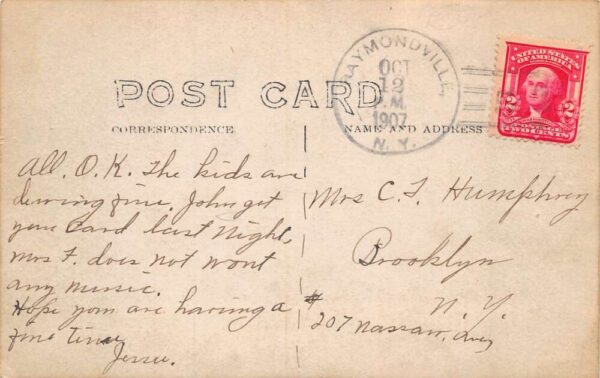 POST CARD
CORRESPONDENCE
NAME AND ADDRESS
RAYMONDVILLE,
OCT
12
P.M.
1907
N.Y.
UNITED STATES
OF AMERICA
2 2
POSTAGE
TWO CENTS
All. O.K. The kids are
fine. John got
your Card last Night,
Mrs F. does not wont
any music.
Hope you are having a
fine time
Jessie.
Mrs C. F. Humphrey
Brooklyn
N.Y.
# 207 Nassaw. Ave